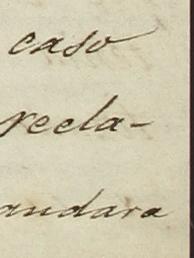 caso
recla-
andara